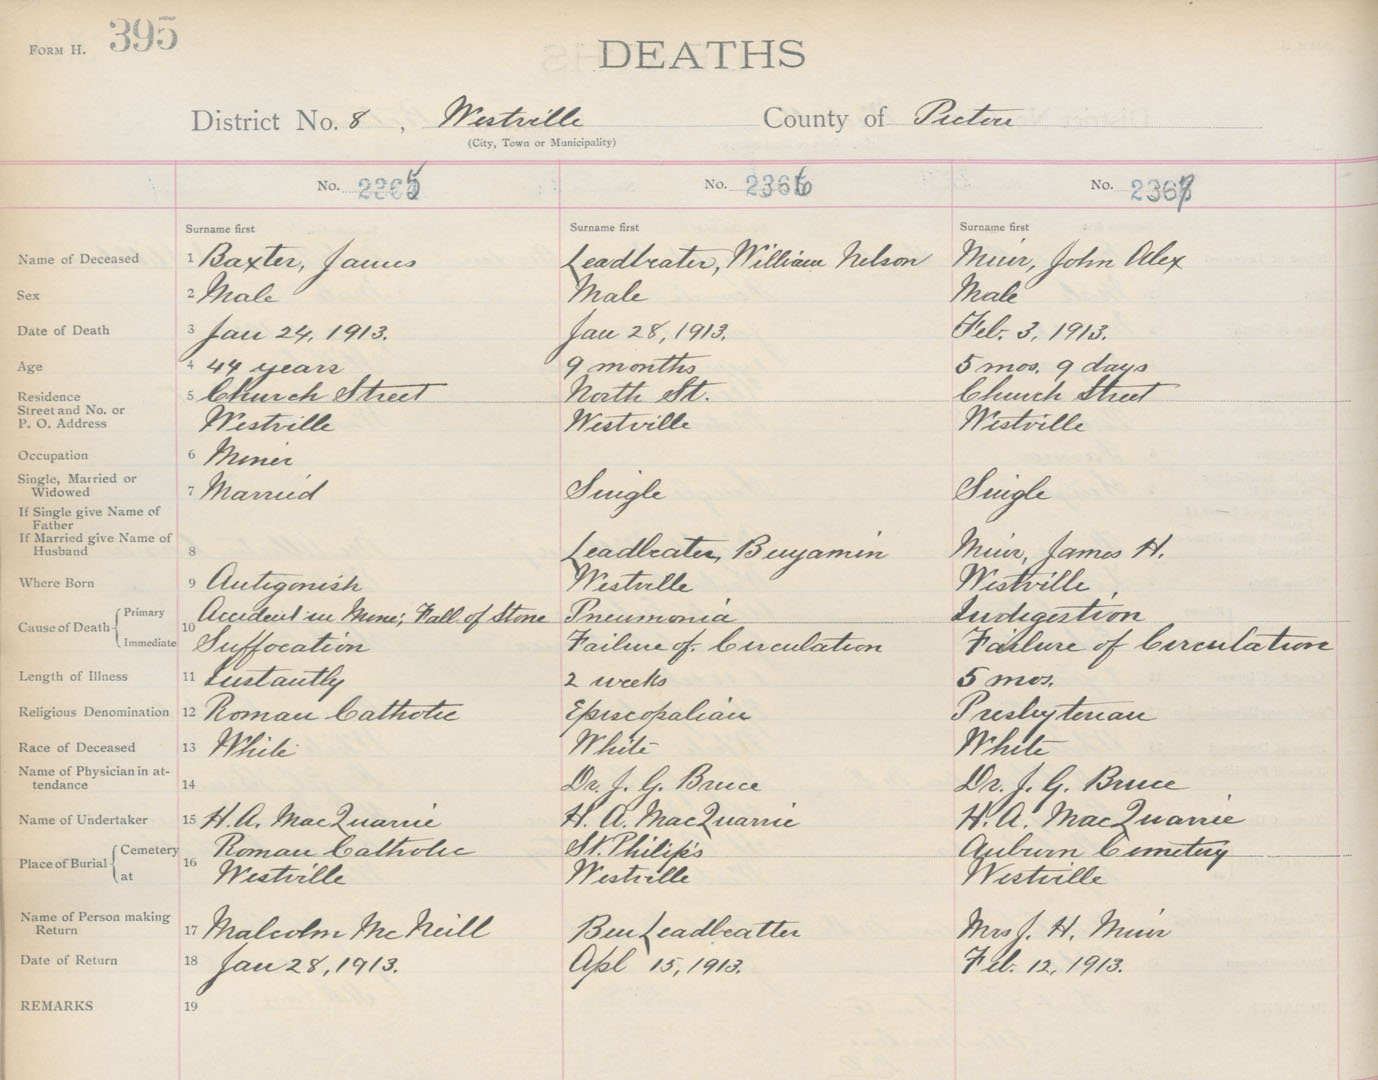 FORM H. 395
DEATHS
District No. 8, Westville County of Pictou
(City, Town or Municipality)
No. 2365 No. 2366 No. 2367
Surname first Surname first Surname first
Name of Deceased 1 Baxter, James Leadbeater, William Nelson Muir, John Alex
Sex 2 Male Male Male
Date of Death 3 Jan 24, 1913. Jan 28, 1913. Feb. 3, 1913.
Age 4 44 years 9 months 5 mos. 9 days
Residence 5 Church Street North St. Church Street
Street and No. or
P. O. Address Westville Westville Westville
Occupation 6 Miner
Single, Married or
Widowed 7 Married Single Single
If Single give Name of
Father
If Married give Name of
Husband 8 Leadbeater, Benjamin Muir, James H.
Where Born 9 Antigonish Westville Westville
Cause of Death Primary 10 Accident in Mine; Fall of Stone Pneumonia Indigestion
Immediate Suffocation Failure of Circulation Failure of Circulation
Length of Illness 11 Instantly 2 weeks 5 mos.
Religious Denomination 12 Roman Catholic Episcopalian Presbyterian
Race of Deceased 13 White White White
Name of Physician in at-
tendance 14 Dr. J. G. Bruce Dr. J. G. Bruce
Name of Undertaker 15 H. A. MacQuarrie H. A. MacQuarrie H. A. MacQuarrie
Place of Burial Cemetery 16 Roman Catholic St. Philip's Auburn Cemetery
at Westville Westville Westville
Name of Person making
Return 17 Malcolm McNeill Ben Leadbeatter Mrs J. H. Muir
Date of Return 18 Jan 28, 1913. Apl 15, 1913. Feb. 12, 1913.
REMARKS 19